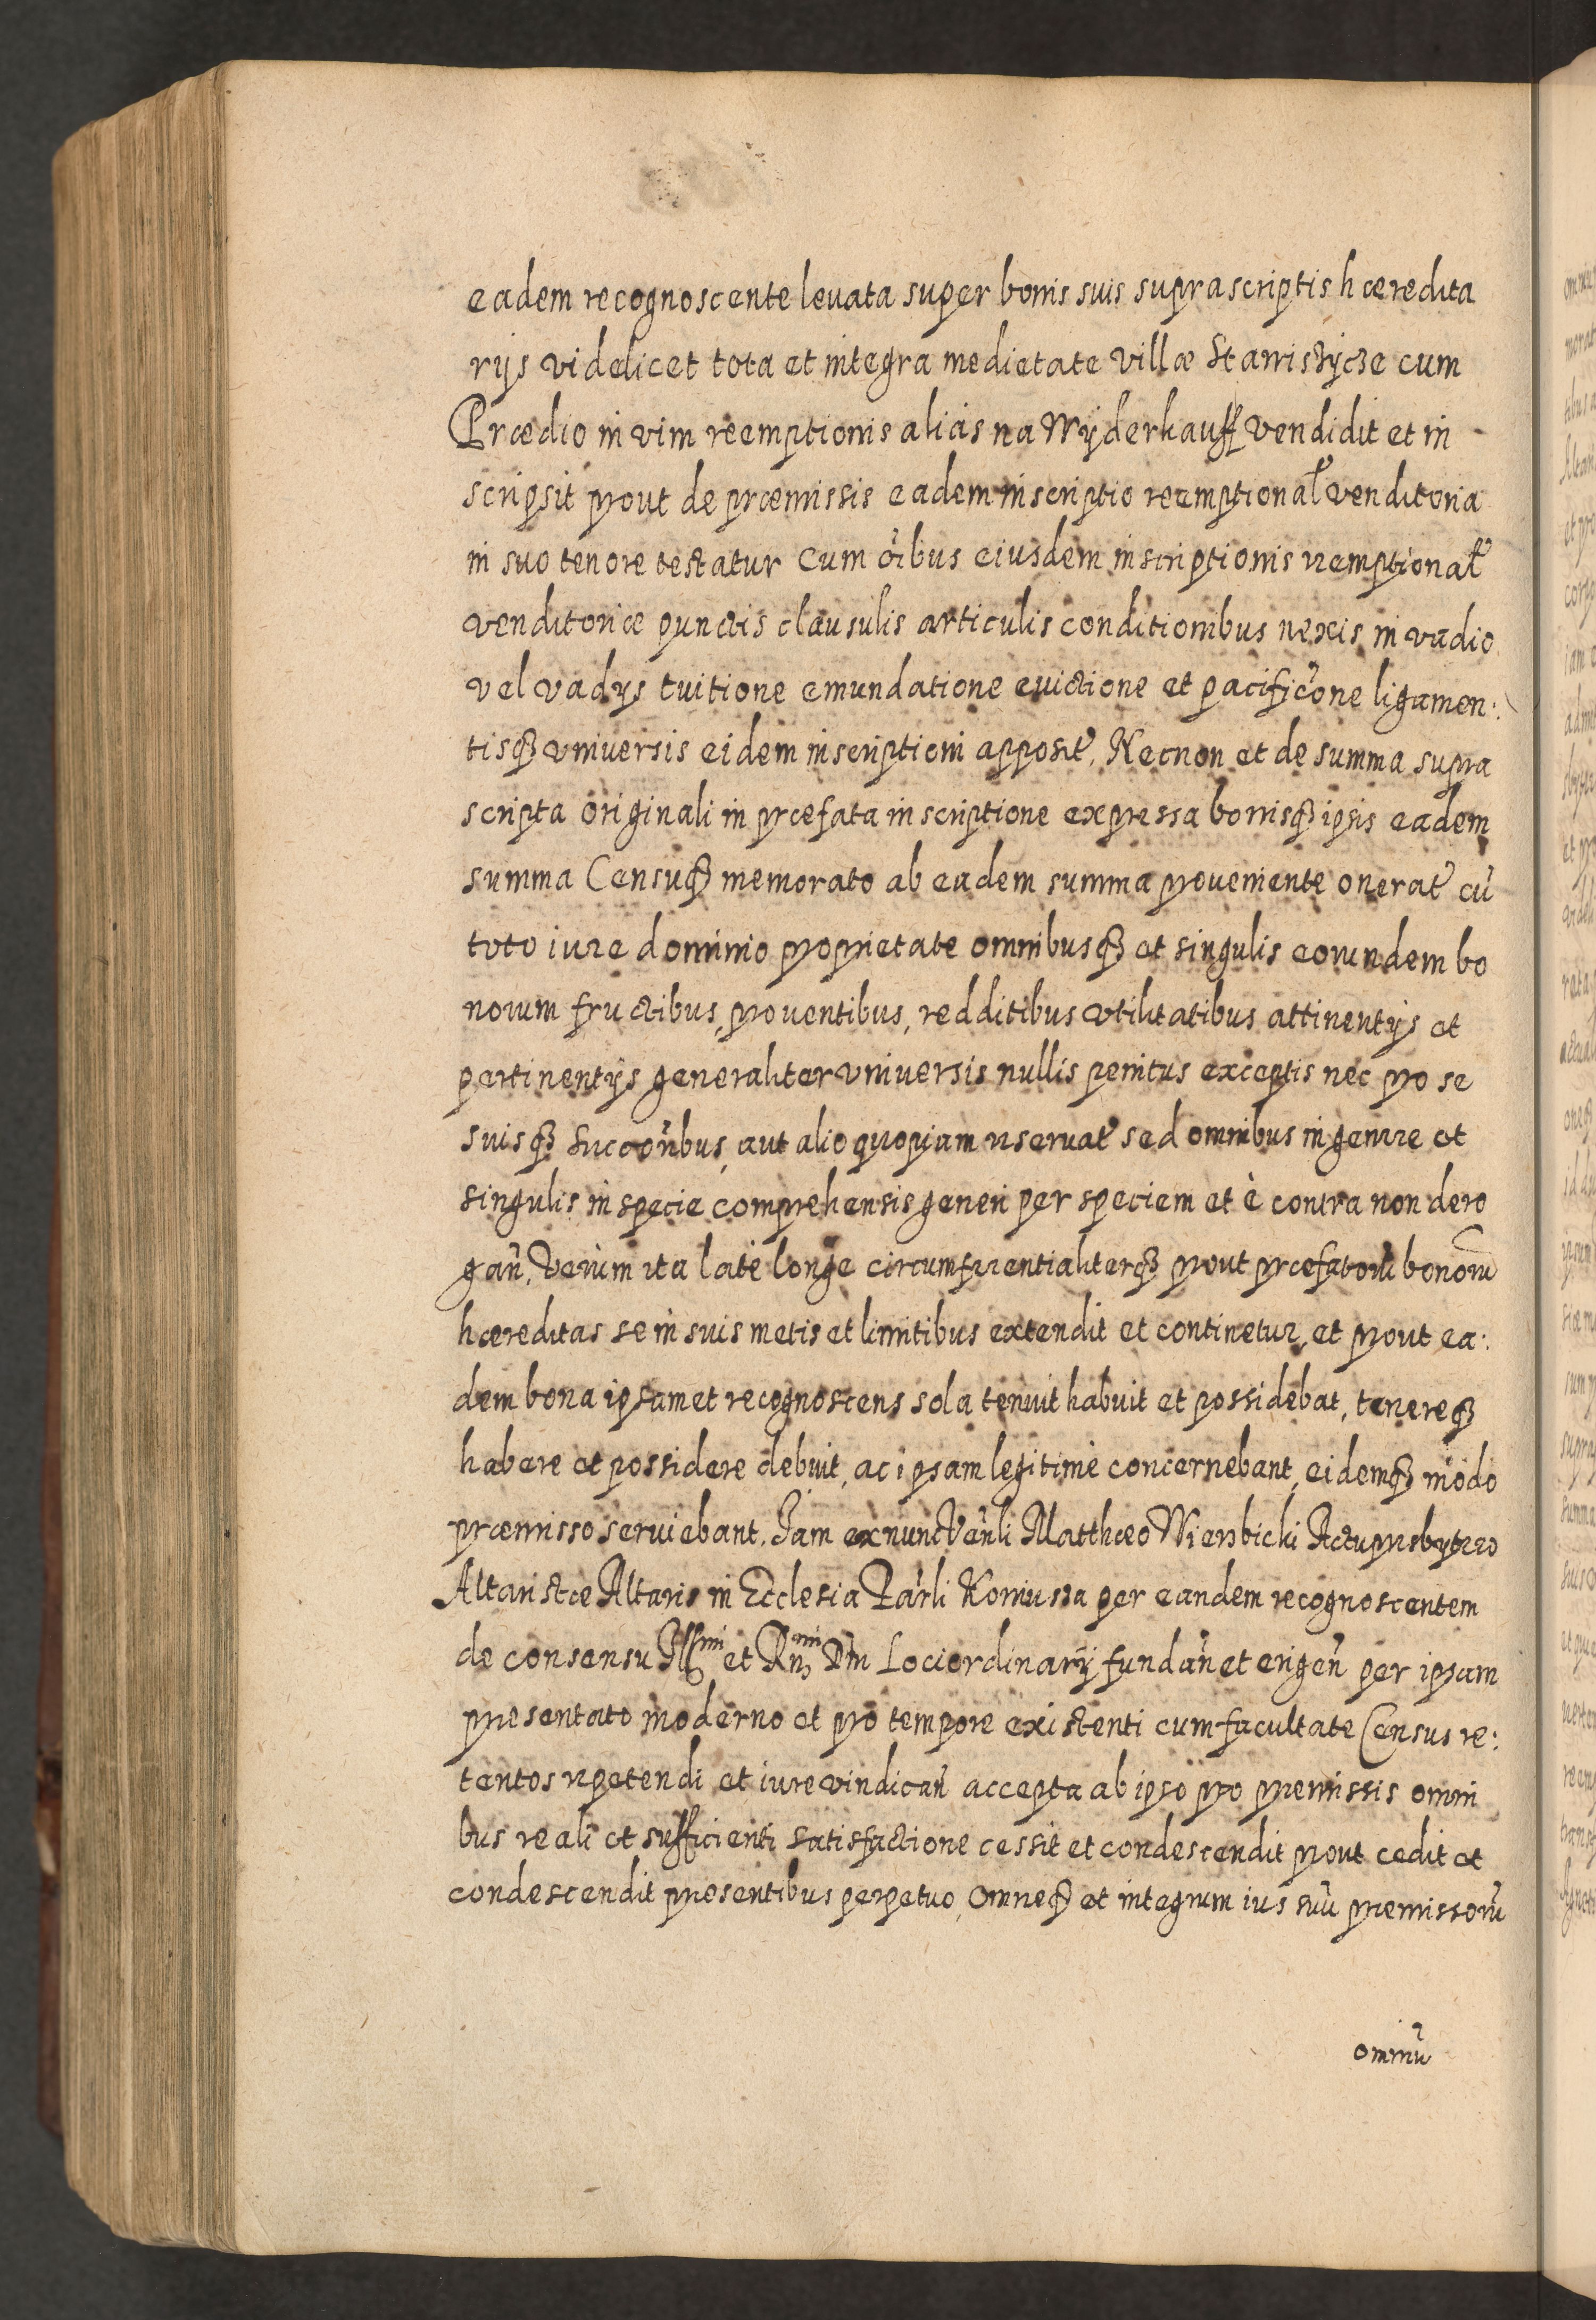 eadem recognoscente levata super bonis suis suprascriptis hæredita
rijs videlicet tota et integra medietate villæ Staniszÿcze cum
Prædio in vim reemptionis aliàs na Wÿderkauff vendidit et in
scripsit prout de præmissis eadem inscriptio reemptional̃ venditoria
in suo tenore testatur Cum oĩbus eiusdem inscriptionis reemptional̃
venditoriæ punctis clausulis articulis conditionibus nexis in vadio
vel vadijs tuitione emundatione evictione et pacificõne ligamen:
tisqȝ vniversis eidem inscriptioni apposit̃, Necnon et de summa supra
scripta originali in præfata inscriptione expressa bonisqȝ ipsis eadem
summa Censuqȝ memorato ab eadem summa proueniente onerat̃ cũ
toto iure dominio proprietate omnibusqȝ et singulis eorundem bo
norum fructibus, prouentibus, redditibus vtilitatibus attinentijs et
pertinentijs generaliter vniversis nullis penitus exceptis nec pro se
suisqȝ Succoribus, aut alio quopiam reseruat̃ sed omnibus in genere et
singulis in specie comprehensis generi per speciem et è contra non dero
gañ, Verùm ita latè longe circumferentialiterqȝ prout præfatorũ bonorũ
hæreditas se in suis metis et limitibus extendit et continetur, et prout ea:
dem bona ipsamet recognoscens sola tenuit habuit et possidebat, tenereqȝ
habere et possidere debuit, ac ipsam legitimè concernebant, eidemqȝ modo
præmisso seruiebant. Jam ex nunc Venli Matthæo Wierzbicki Actu presbytero
Altaristæ Altaris in Ecclesia Parli Koniussa per eandem recognoscentem
de consensu Illmi et Rnmi Dni Loci ordinarij fundañ et erigeñ per ipsam
presentato moderno et pro tempore existenti cum facultate Census re:
tentos repetendi et iure vindicañ accepta ab ipso pro premissis omni
bus reali et sufficienti satisfactione cessit et condescendit prout cedit et
condescendit presentibus perpetuo, Omneqȝ et integrum ius suũ premissorũ
omniũ